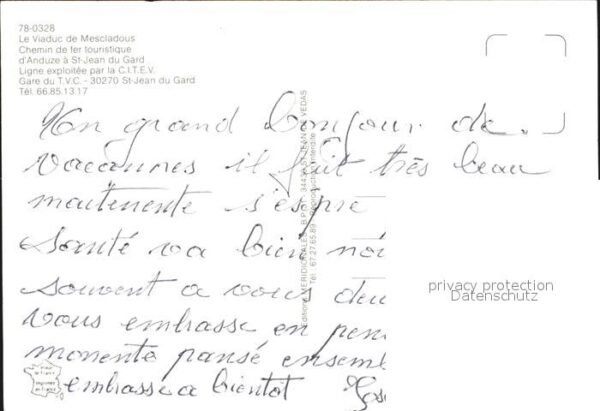 78-0328
Le Viaduc de Mescladous
Chemin de fer touristique
d'Anduze à St-Jean du Gard
Ligne exploitée par la C.I.T.E.V.
Gare du T.V.C. - 30270 St-Jean du Gard
Tél. 66.85.13.17
Un grand bonjour de
vacannes il fait très beau
maitenente s'espre
santé va bien
souvent a vous
vous embrasse en
momente pansé
embrasse a bientot
Editions MERIDIONALES - 34430 ST-JEAN DE VEDAS
Tél. 67.27.65.89 - Reproduction interdite
privacy protection
Datenschutz